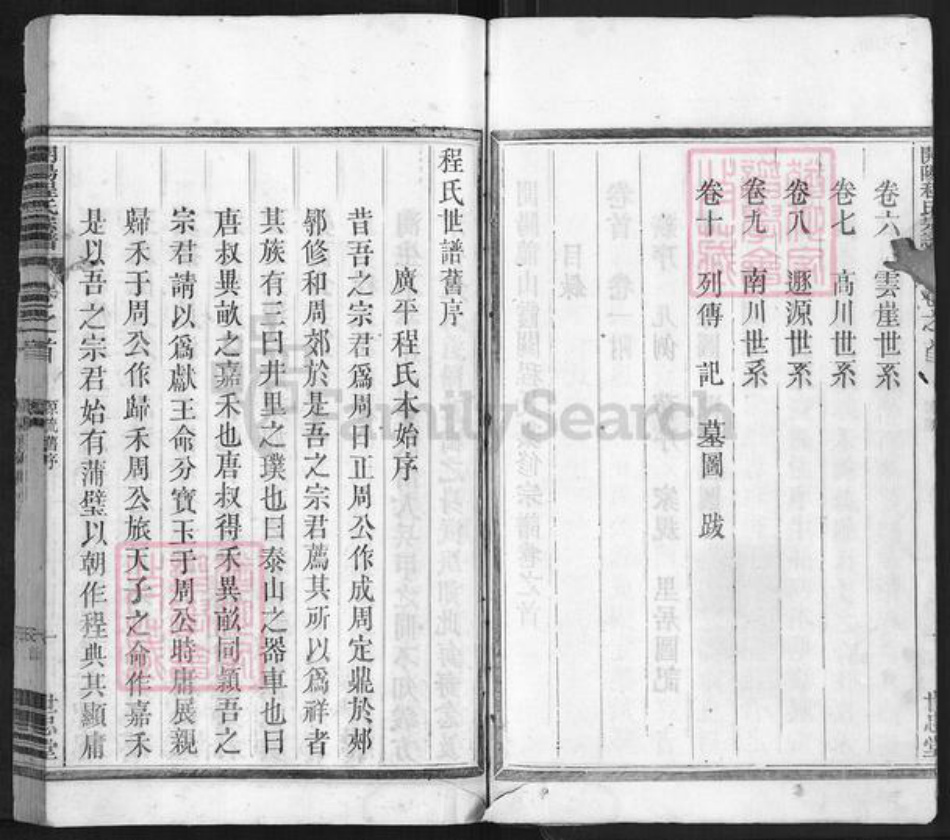 卷六 雲崖世系
卷七 高川世系
卷八 遯源世系
卷九 南川世系
卷十 列傳記 墓圖 跋
程氏世譜舊序
廣平程氏本始序
昔吾之宗君爲周日正周公作成周定鼎於郟
鄏修和周郊於是吾之宗君薦其所以爲祥者
其族有三曰井里之璞也曰泰山之器車也曰
唐叔異畝之嘉禾也唐叔得禾異畝同穎吾之
宗君請以爲獻王命分寶玉于周公時庸展親
歸禾于周公作歸禾周公旅天子之命作嘉禾
是以吾之宗君始有蒲璧以朝作程典其顯庸
世忠堂
世忠堂
FamilySearch